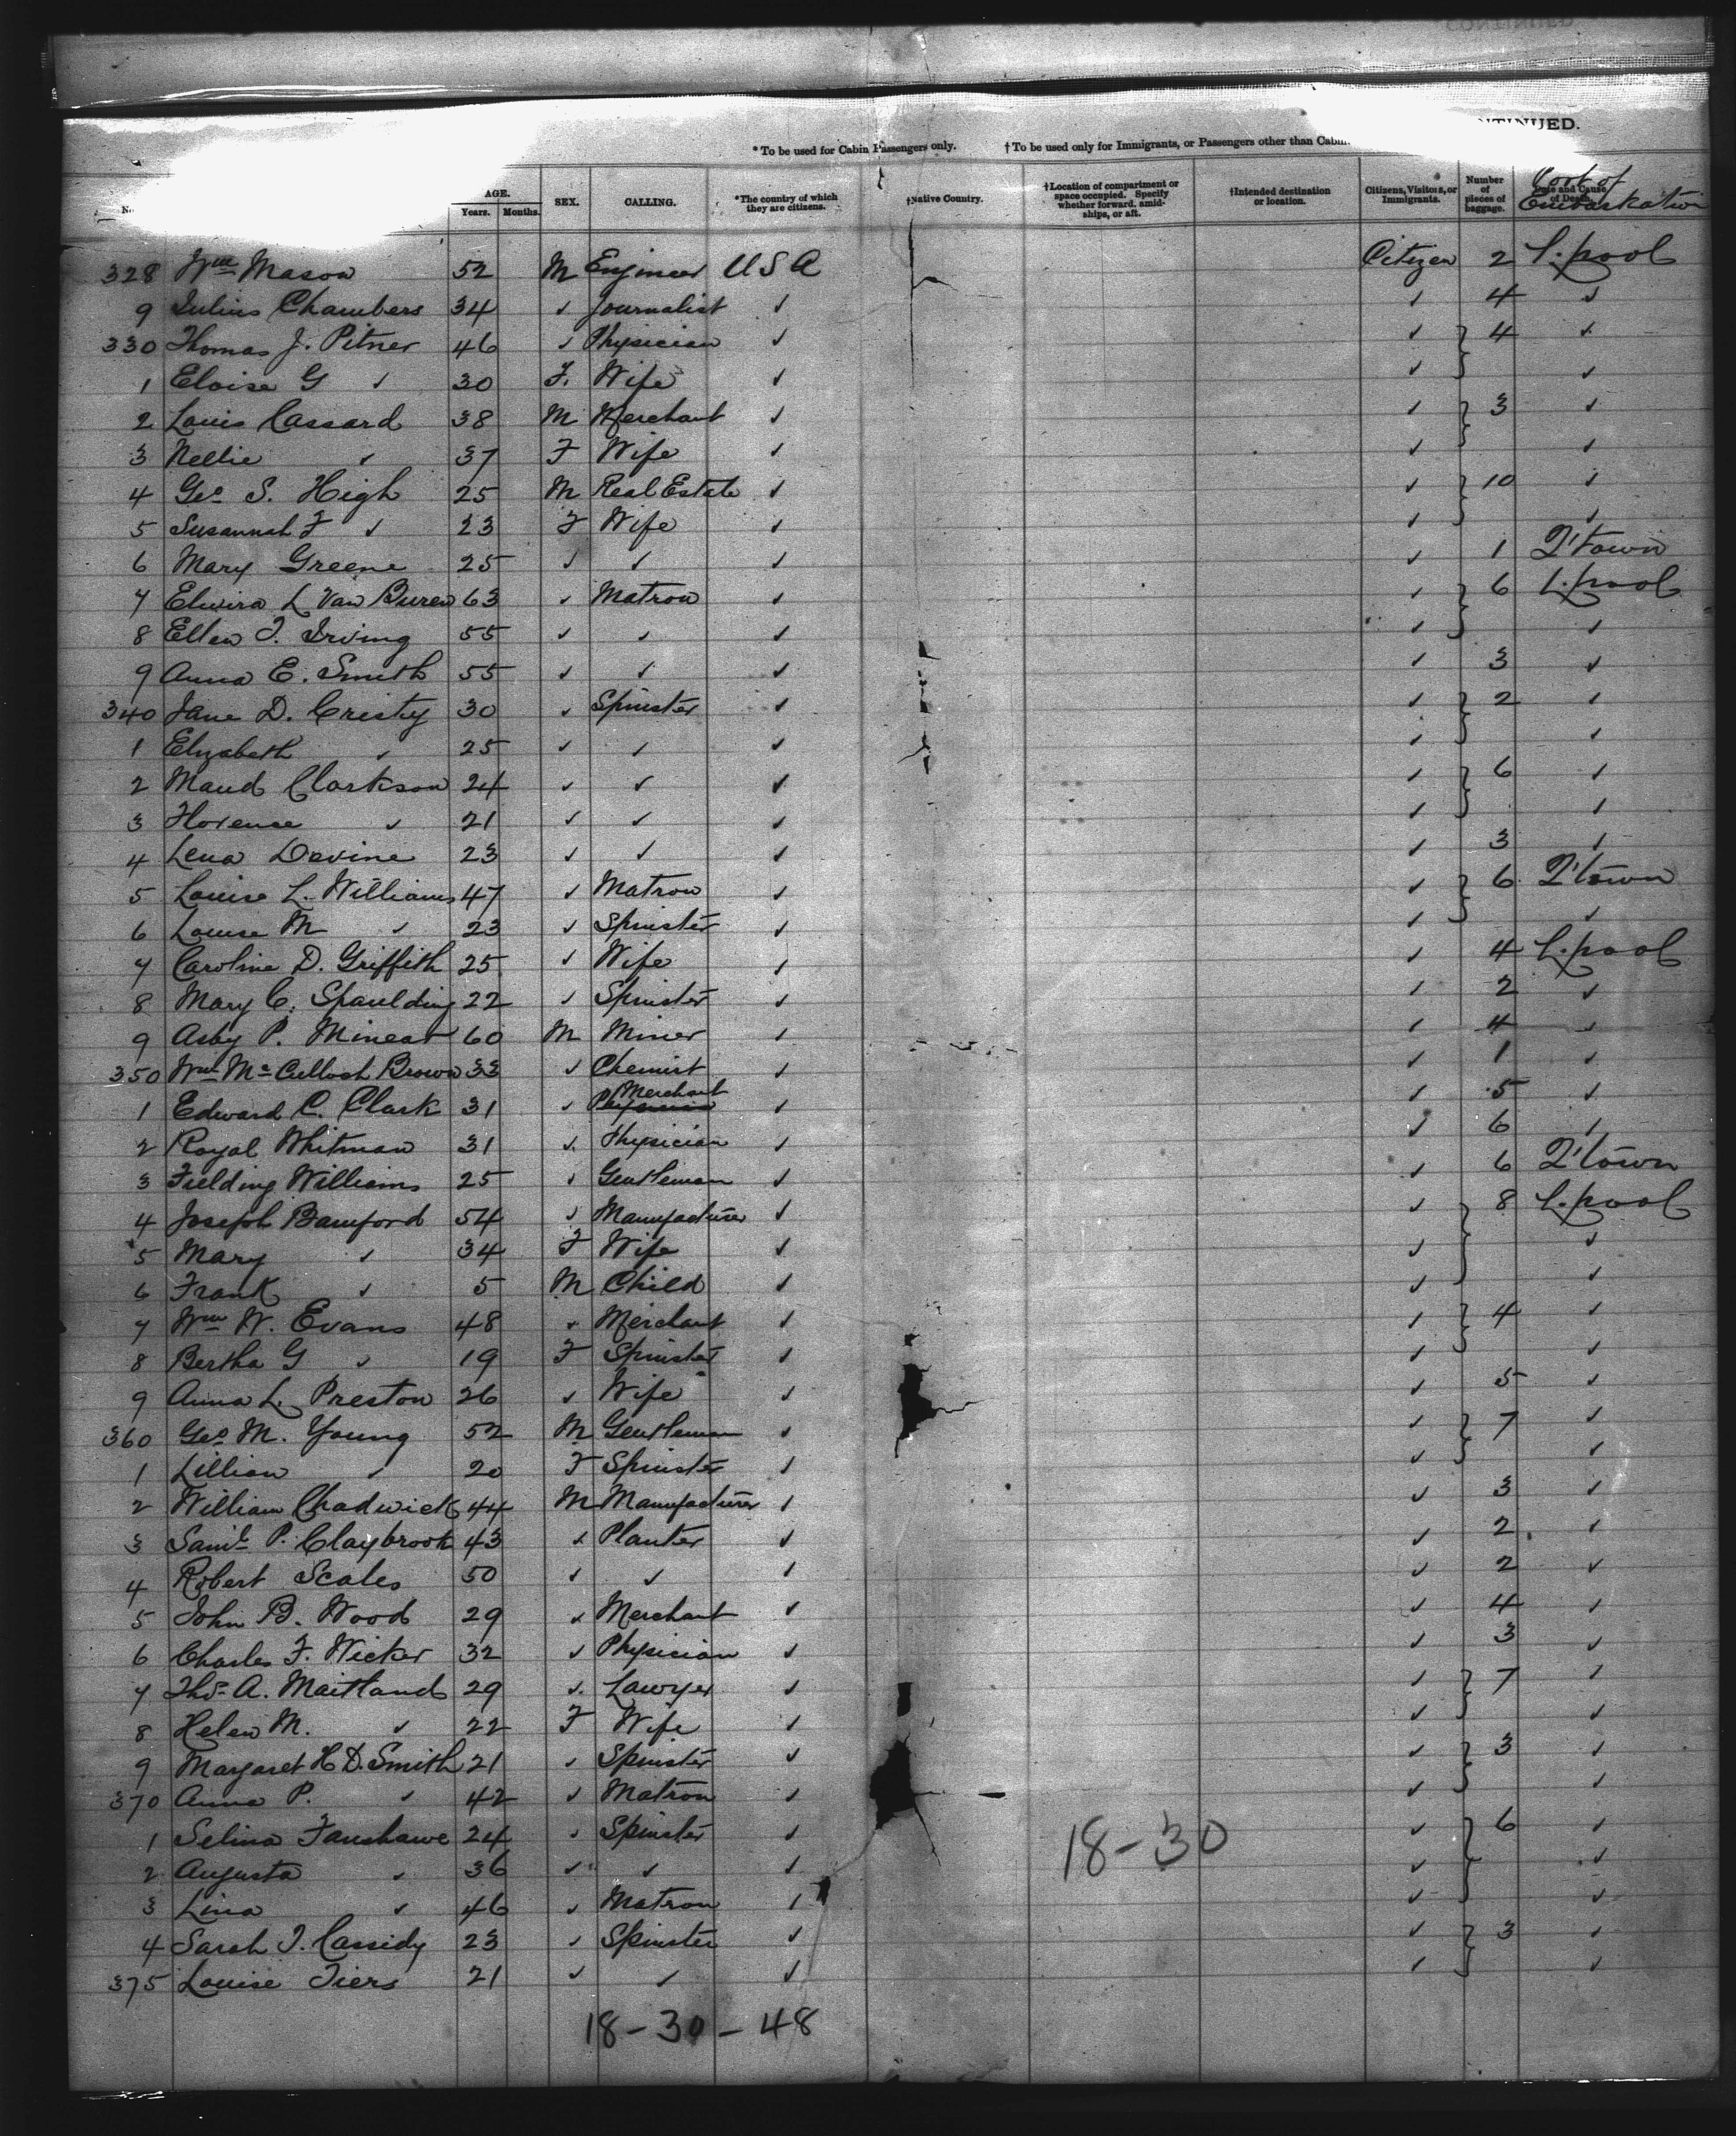 CONTINUED
NTINUED.
* To be used for Cabin Passengers only. † To be used only for Immigrants, or Passengers other than Cabin.
AGE. Years. Months. SEX. CALLING. *The country of which they are citizens. †Native Country. †Location of compartment or space occupied. Specify whether forward, amidships, or aft. †Intended destination or location. Citizens, Visitors, or Immigrants. Number of pieces of baggage. Date and Cause of Death. Port of Embarkation
328 Wm Mason 52 M Engineer USA Citizen 2 L.pool
9 Julius Chambers 34 ✓ Journalist ✓ ✓ 4 ✓
330 Thomas J. Pitner 46 ✓ Physician ✓ ✓ } 4 ✓
1 Eloise G ✓ 30 F. Wife ✓ ✓ ✓
2 Louis Cassard 38 M Merchant ✓ ✓ } 3 ✓
3 Nellie ✓ 37 F Wife ✓ ✓ ✓
4 Geo S. High 25 M Real Estate ✓ ✓ } 10 ✓
5 Susannah F ✓ 23 F Wife ✓ ✓ ✓
6 Mary Greene 25 ✓ ✓ ✓ ✓ 1 Q'town
7 Elvira L Van Buren 63 ✓ Matron ✓ ✓ } 6 L.pool
8 Ellen T. Irving 55 ✓ ✓ ✓ ✓ ✓
9 Anna E. Smith 55 ✓ ✓ ✓ ✓ 3 ✓
340 Jane D. Cristy 30 ✓ Spinster ✓ ✓ } 2 ✓
1 Elizabeth ✓ 25 ✓ ✓ ✓ ✓ ✓
2 Maud Clarkson 24 ✓ ✓ ✓ ✓ } 6 ✓
3 Florence ✓ 21 ✓ ✓ ✓ ✓ ✓
4 Lena Devine 23 ✓ ✓ ✓ ✓ 3 ✓
5 Louise L. Williams 47 ✓ Matron ✓ ✓ } 6 Q'town
6 Louise M ✓ 23 ✓ Spinster ✓ ✓ ✓
7 Caroline D. Griffith 25 ✓ Wife ✓ ✓ 4 L.pool
8 Mary C. Spaulding 22 ✓ Spinster ✓ ✓ 2 ✓
9 Asby P. Minear 60 M Miner ✓ ✓ 4 ✓
350 Wm McCulloch Brown 33 ✓ Chemist ✓ ✓ 1 ✓
1 Edward C. Clark 31 ✓ Merchant ✓ ✓ 5 ✓
2 Royal Whitman 31 ✓ Physician ✓ ✓ 6 ✓
3 Fielding Williams 25 ✓ Gentleman ✓ ✓ 6 Q'town
4 Joseph Bamford 54 ✓ Manufacturer ✓ ✓ } 8 L.pool
5 Mary ✓ 34 F Wife ✓ ✓ ✓
6 Frank ✓ 5 M Child ✓ ✓ ✓
7 Wm W. Evans 48 ✓ Merchant ✓ ✓ } 4 ✓
8 Bertha G ✓ 19 F Spinster ✓ ✓ ✓
9 Anna L. Preston 26 ✓ Wife ✓ ✓ 5 ✓
360 Geo M. Young 52 M Gentleman ✓ ✓ } 7 ✓
1 Lillian ✓ 20 F Spinster ✓ ✓ ✓
2 William Chadwick 44 M Manufacturer ✓ ✓ 3 ✓
3 Saml P. Claybrook 43 ✓ Planter ✓ ✓ 2 ✓
4 Robert Scales 50 ✓ ✓ ✓ ✓ 2 ✓
5 John B. Wood 29 ✓ Merchant ✓ ✓ 4 ✓
6 Charles F. Wicker 32 ✓ Physician ✓ ✓ 3 ✓
7 Thos. A. Maitland 29 ✓ Lawyer ✓ ✓ } 7 ✓
8 Helen M. ✓ 22 F Wife ✓ ✓ ✓
9 Margaret H D. Smith 21 ✓ Spinster ✓ ✓ } 3 ✓
370 Anna P. ✓ 42 ✓ Matron ✓ ✓ ✓
1 Selina Fanshawe 24 ✓ Spinster ✓ ✓ } 6 ✓
2 Augusta ✓ 36 ✓ ✓ ✓ ✓ ✓
3 Lina ✓ 46 ✓ Matron ✓ ✓ ✓
4 Sarah J. Cassidy 23 ✓ Spinster ✓ ✓ } 3 ✓
375 Louise Tiers 21 ✓ ✓ ✓ ✓ ✓
18-30
18-30-48